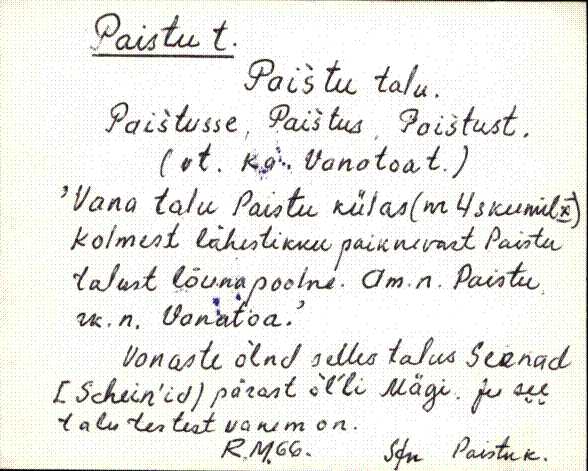 Paistu t.
Paištu talu.
Paištusse, Paištus, Paištust.
(vt. ka. Vanatoa t.)
'Vana talu Paistu külas (m
kolmest lähestikku paiknevast Paistu
talust lõunapoolne. Am.n. Paistu,
rk.n. Vanatoa.'
Vanaste õlnd selles talus Seenad
[Schein'id) pärast õl'li Mägi. ju see
talu testest vanem on.
R.M.66. Stn Paistu k.